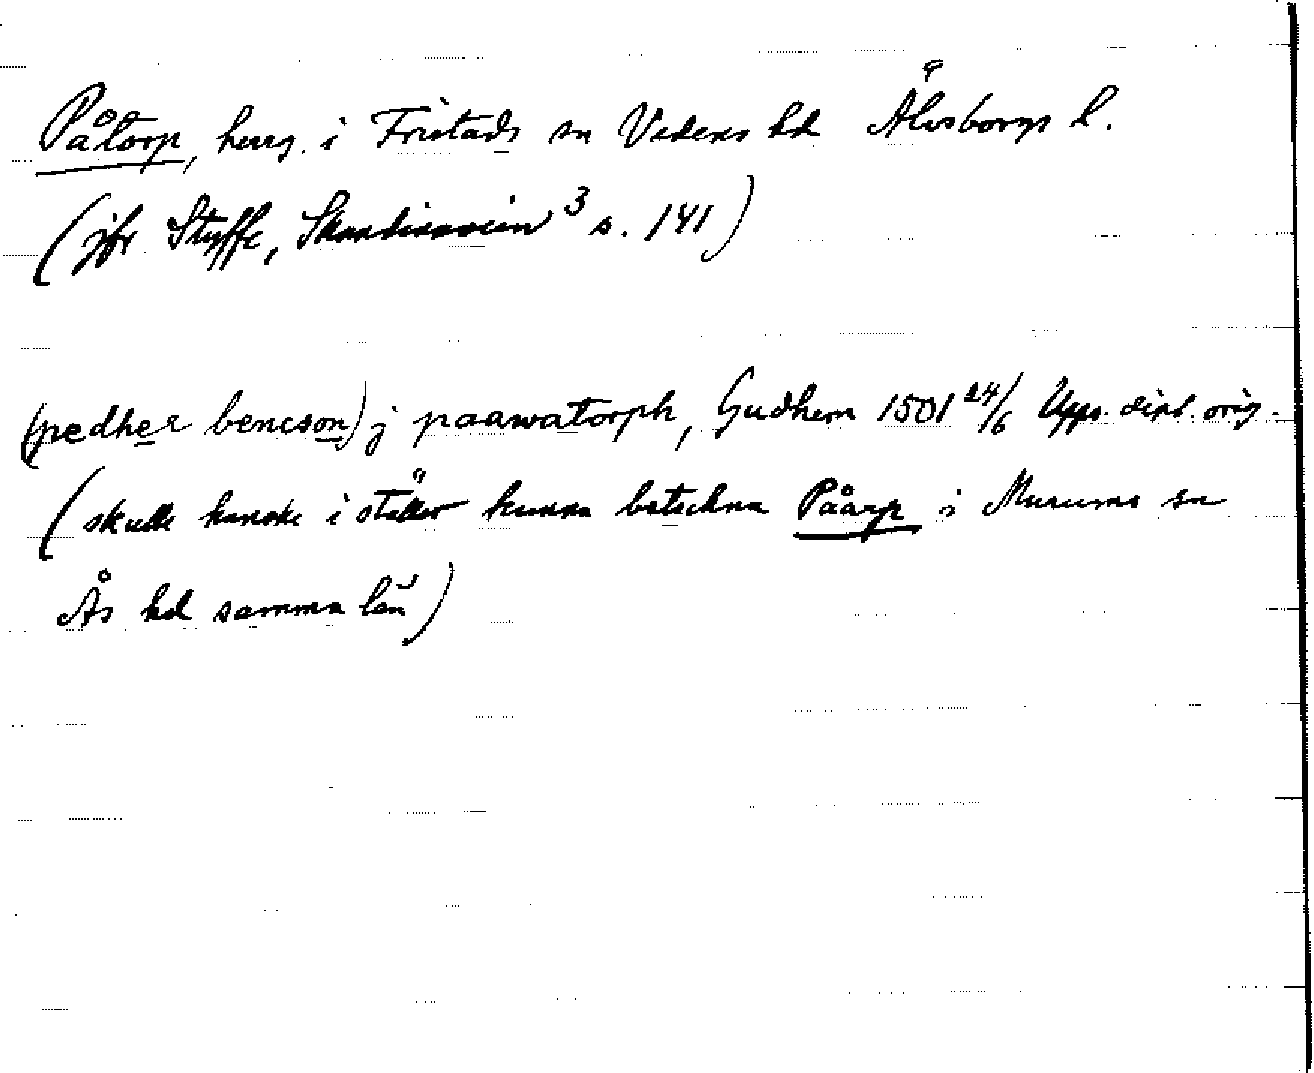 Påtorp, herrg. i Fristads sn Vedens hd Älvsborgs l.
(jfr Styffe, Skandinavien³ s. 141)
(pedher bencson) j paawatorph, Gudhem 1501 24/6 Upps. dipl. orig.
(skulle kanske i stället kunna beteckna Påarp i Murums sn
Ås hd samma län)